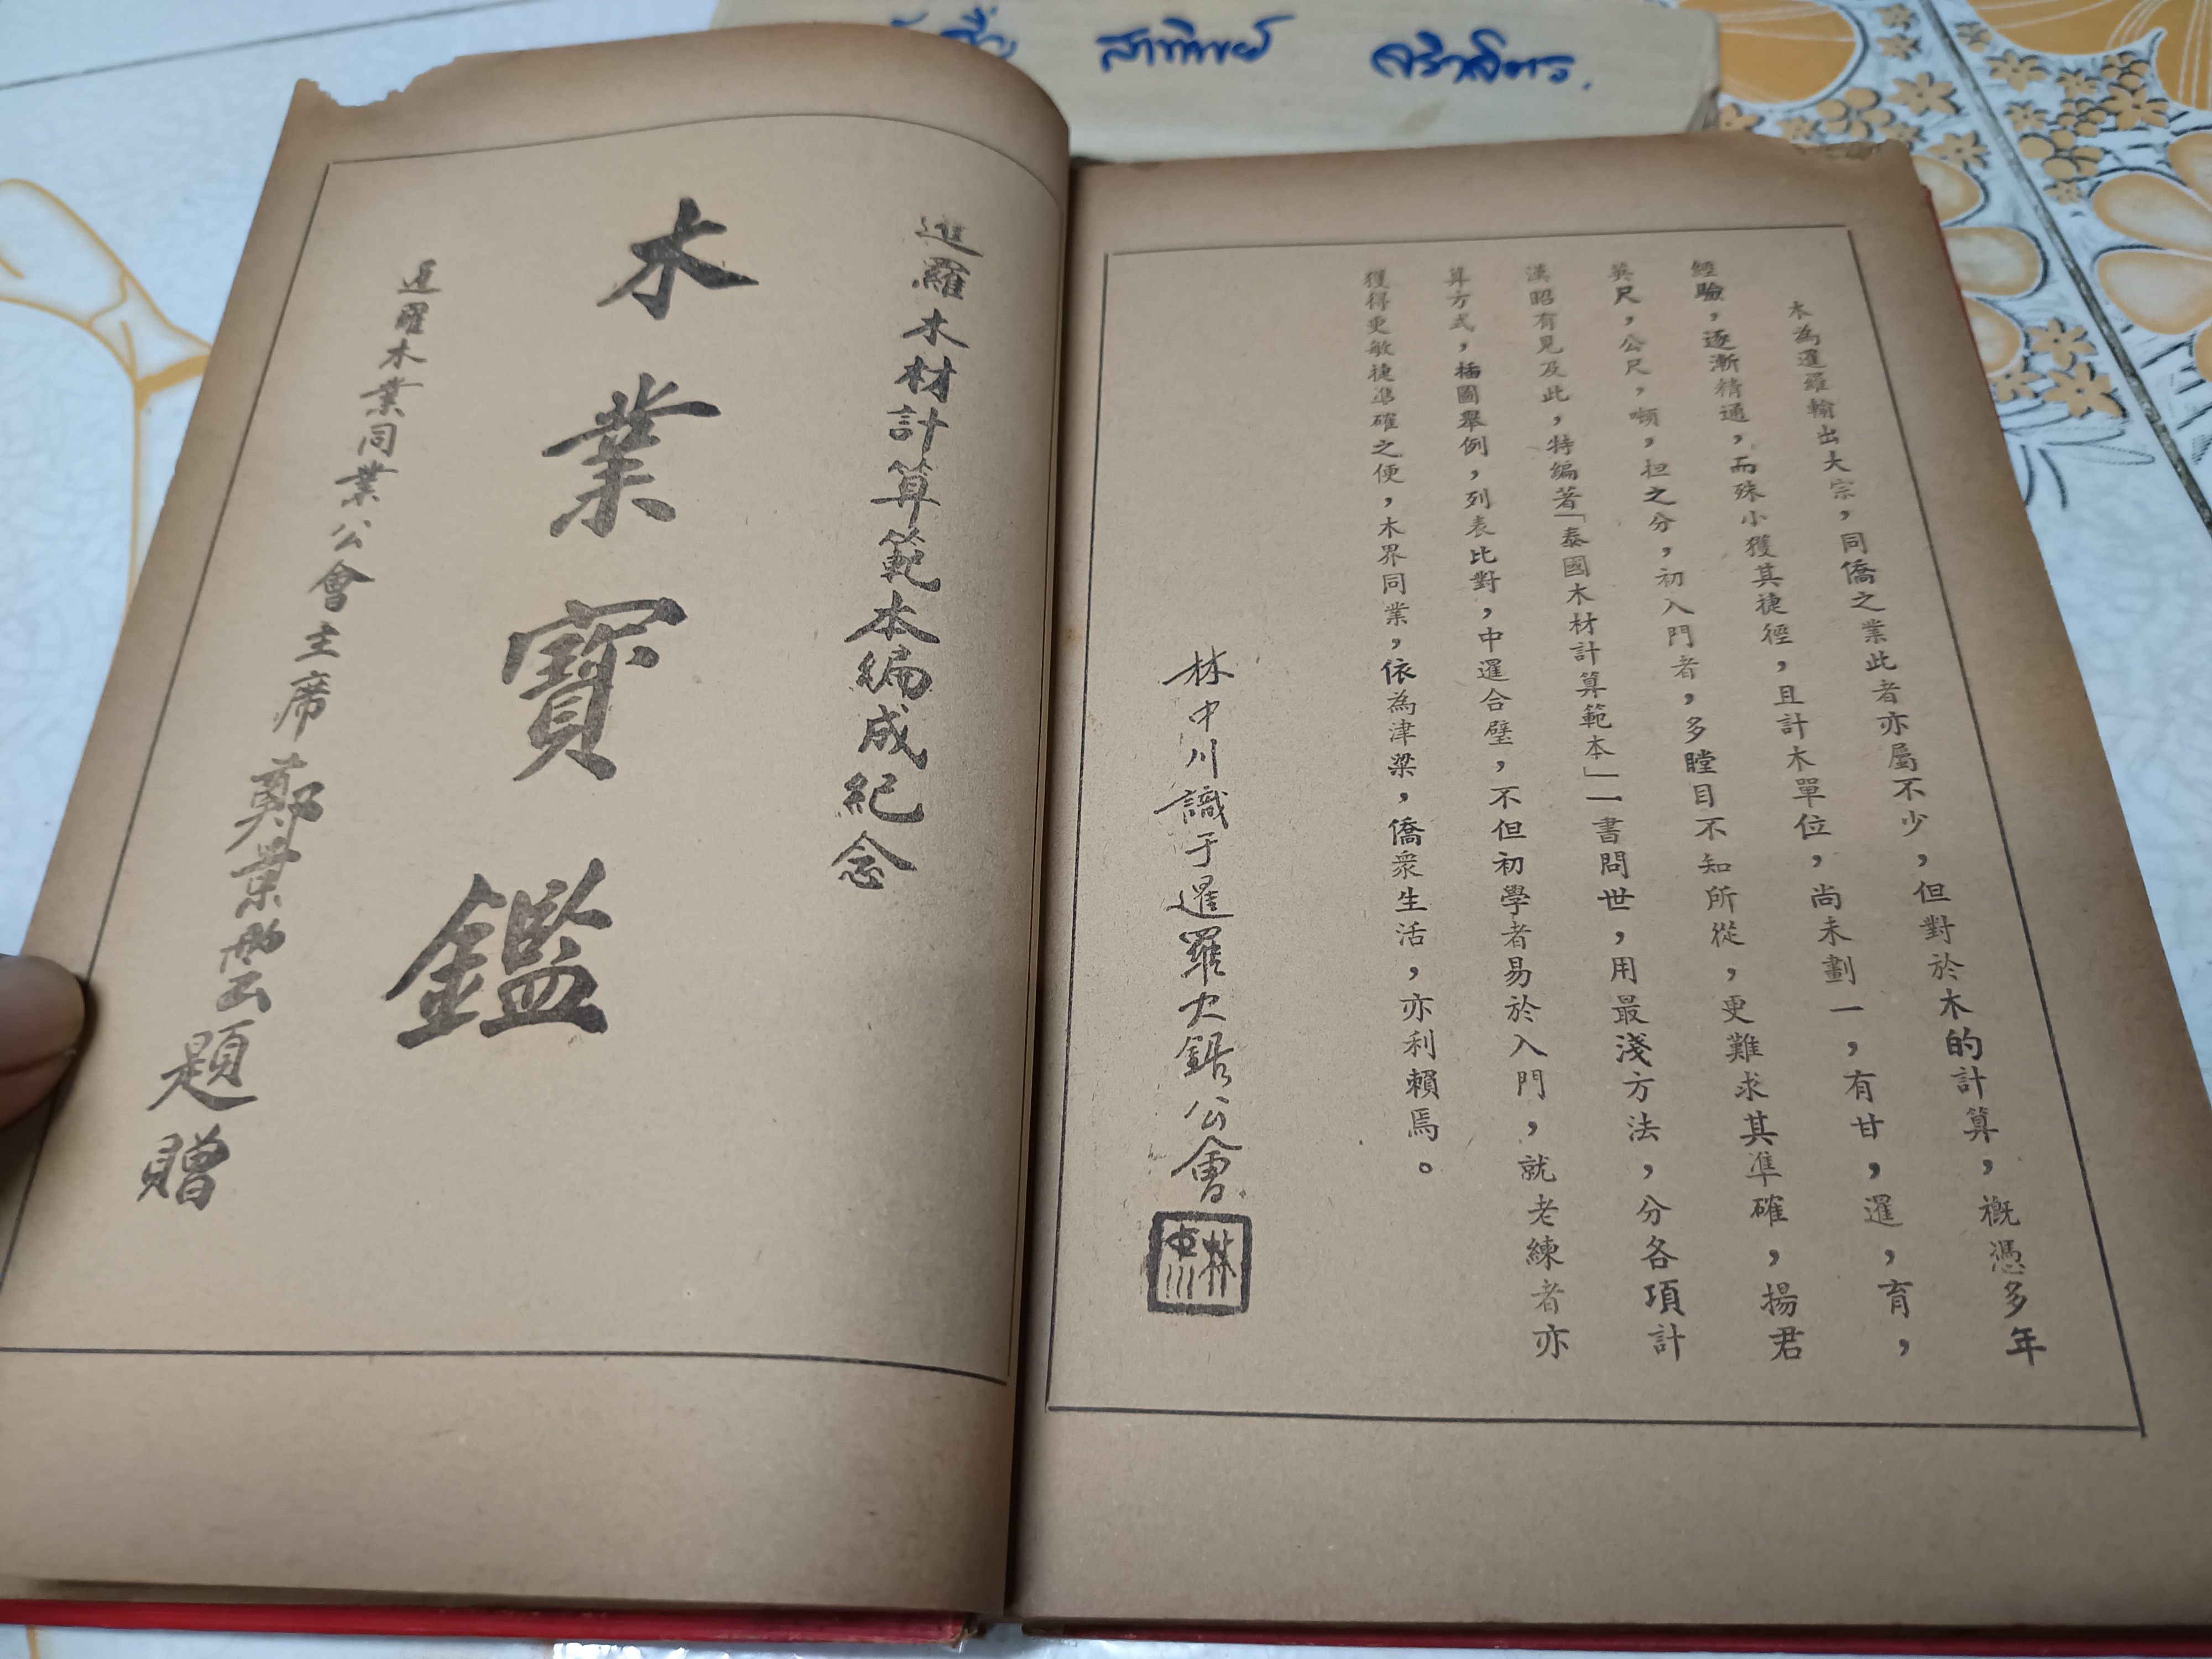 สาทิพย์
木為暹羅輸出大宗，同僑之業此者亦屬不少，但對於木的計算，概憑多年
經驗，逐漸精通，而殊小獲其捷徑，且計木單位，尚未劃一，有甘，暹，育，
英尺，公尺，噸，担之分，初入門者，多瞠目不知所從，更難求其準確，揚君
漢昭有見及此，特編著「泰國木材計算範本」一書問世，用最淺方法，分各項計
算方式，插圖舉例，列表比對，中暹合璧，不但初學者易於入門，就老練者亦
獲得更敏捷準確之便，木界同業，依為津梁，僑衆生活，亦利賴焉。
林中川識于暹羅火鋸公會
林中川
暹羅木材計算範本編成紀念
木業寶鑑
暹羅木業同業公會主席鄭業雲題贈